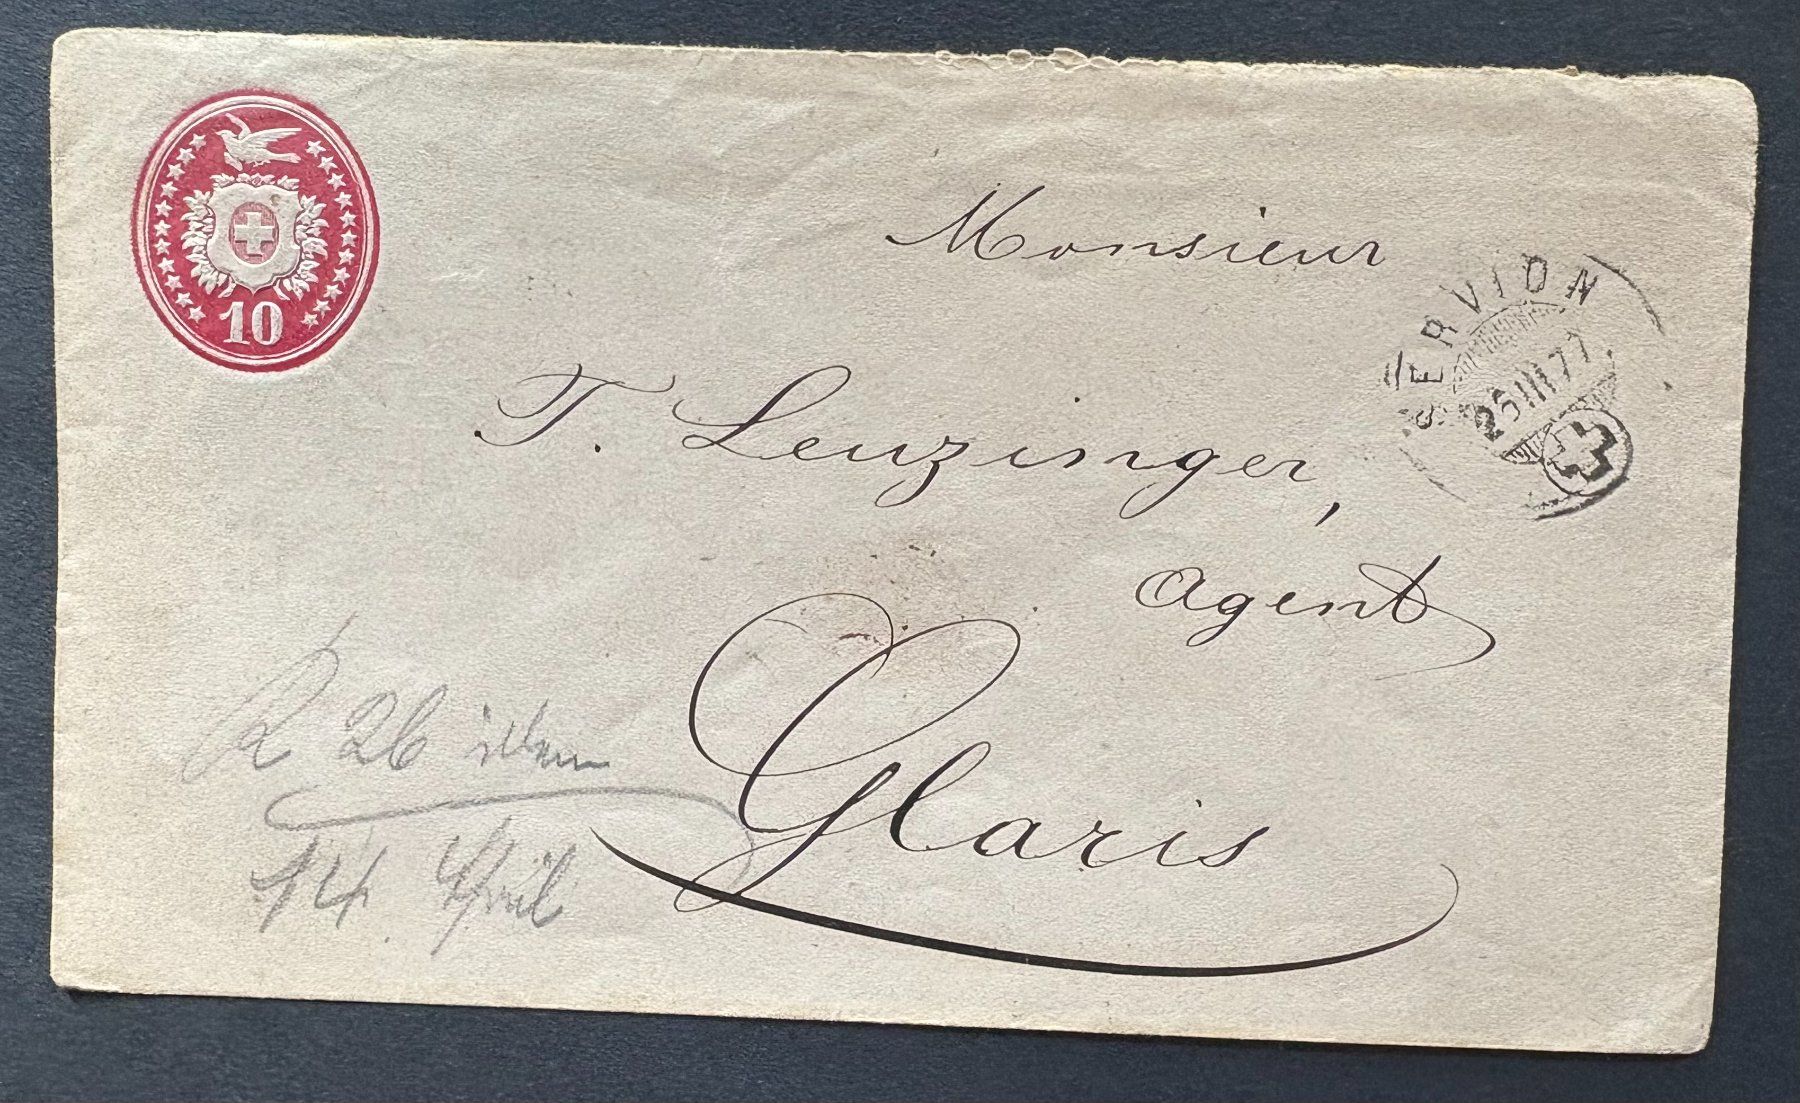 10
Monsieur
SERVION
25 III 77
T. Leuzinger,
Agent
Glaris
R 26 idem
14. April